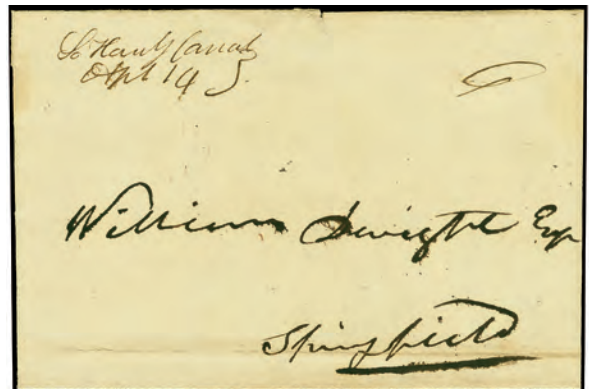 So Hadly Canal
Apl 14
6
William Dwight Esqr
Springfield